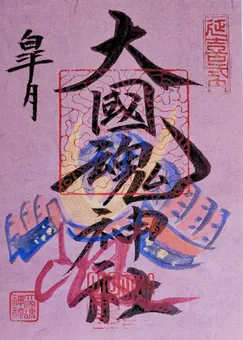 延喜式内
大國魂神社
皐月